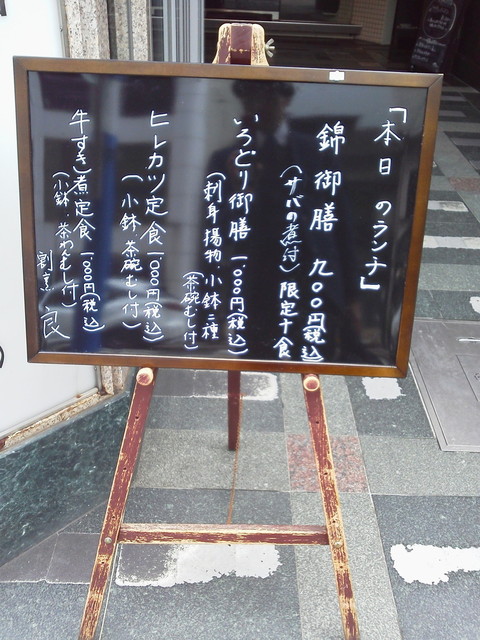 「本日のランチ」
錦御膳 九〇〇円(税込)
(サバの煮付) 限定十食
いろどり御膳 一〇〇〇円(税込)
(刺身・揚物・小鉢二種
(茶碗むし付)
ヒレカツ定食 一〇〇〇円(税込)
(小鉢・茶碗むし付)
牛すき煮定食 一〇〇〇円(税込)
(小鉢・茶わんむし付)
割烹 良